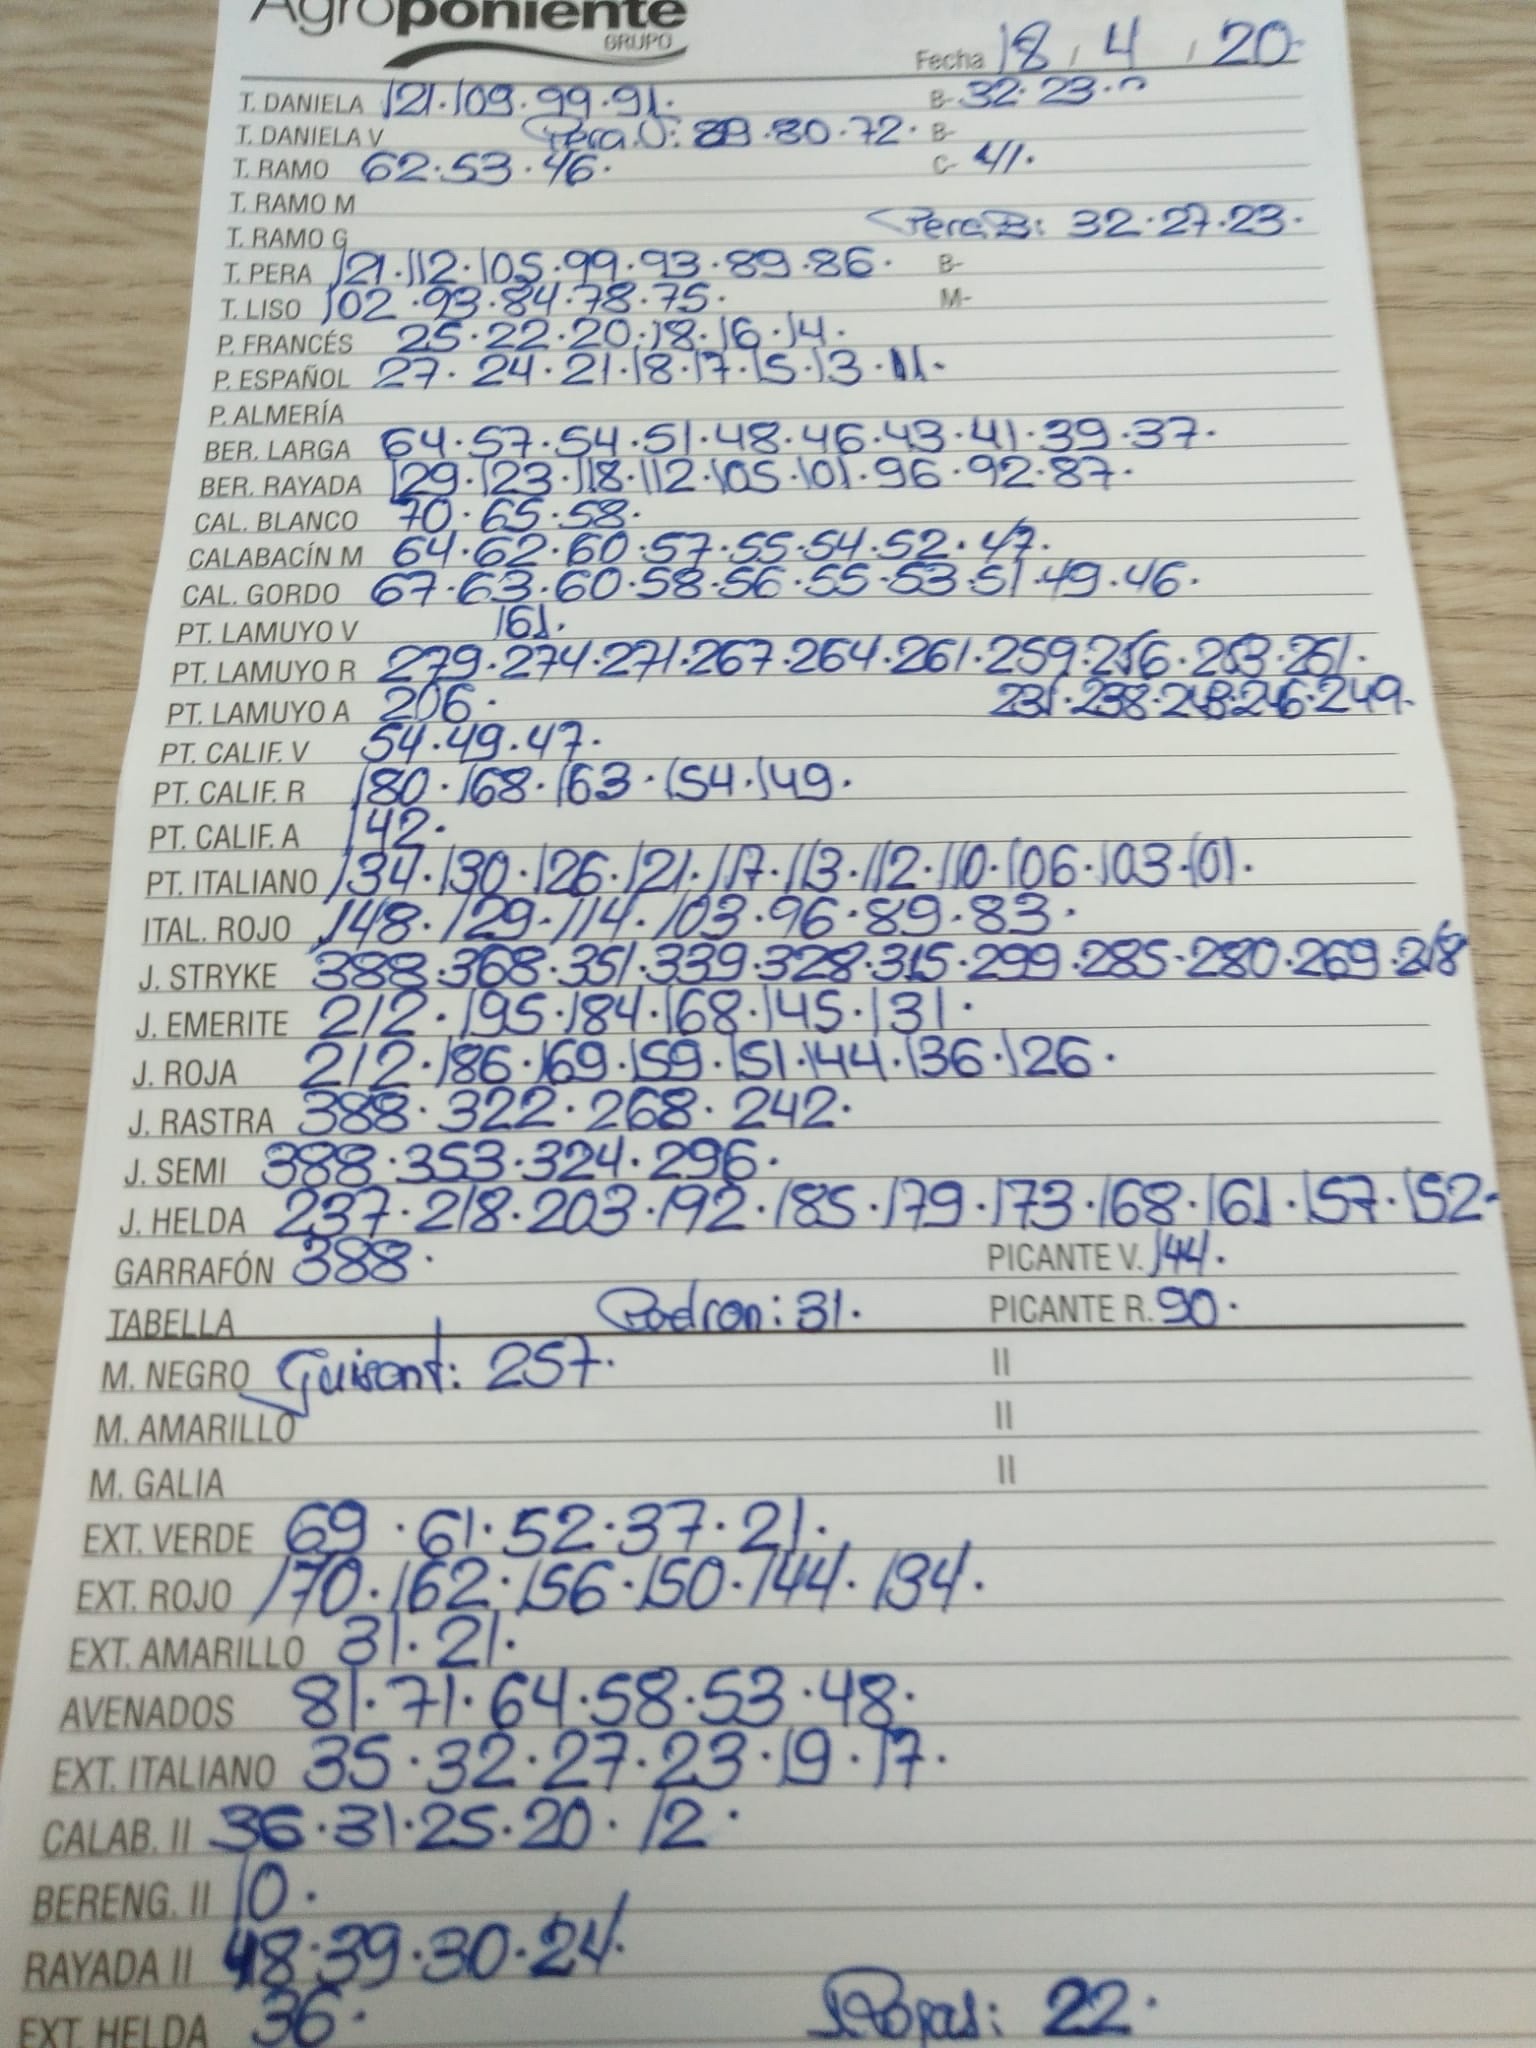 Agroponiente
GRUPO
Fecha 18 / 4 / 20
T. DANELA 121·109·99·91· B- 32·23·
T. DANIELA V Pera.V: 89·80·72· B-
T. RAMO 62·53·46· C- 41·
T. RAMO M
T. RAMO G Pera B: 32·27·23·
T. PERA 121·112·105·99·93·89·86· B-
T. LISO 102·93·84·78·75· M-
P. FRANCÉS 25·22·20·18·16·14·
P. ESPAÑOL 27·24·21·18·17·15·13·11·
P. ALMERÍA
BER. LARGA 64·57·54·51·48·46·43·41·39·37·
BER. RAYADA 129·123·118·112·105·101·96·92·87·
CAL. BLANCO 70·65·58·
CALABACÍN M 64·62·60·57·55·54·52·47·
CAL. GORDO 67·63·60·58·56·55·53·51·49·46·
PT. LAMUYO V 161·
PT. LAMUYO R 279·274·271·267·264·261·259·256·253·251·
PT. LAMUYO A 206· 231·238·243·246·249·
PT. CALIF. V 54·49·47·
PT. CALIF. R 180·168·163·154·149·
PT. CALIF. A 142·
PT. ITALIANO 134·130·126·121·117·113·112·110·106·103·101·
ITAL. ROJO 148·129·114·103·96·89·83·
J. STRYKE 388·368·351·339·328·315·299·285·280·269·258
J. EMERITE 212·195·184·168·145·131·
J. ROJA 212·186·169·159·151·144·136·126·
J. RASTRA 388·322·268·242·
J. SEMI 388·353·324·296·
J. HELDA 237·218·203·192·185·179·173·168·161·157·152·
GARRAFÓN 388· PICANTE V. 144·
TABELLA Padron: 31· PICANTE R. 90·
M. NEGRO Guisant: 257· II
M. AMARILLO II
M. GALIA II
EXT. VERDE 69·61·52·37·21·
EXT. ROJO 170·162·156·150·144·134·
EXT. AMARILLO 31·21·
AVENADOS 81·71·64·58·53·48·
EXT. ITALIANO 35·32·27·23·19·17·
CALAB. II 36·31·25·20·12·
BERENG. II 10·
RAYADA II 48·39·30·24·
EXT. HELDA 36· 22·